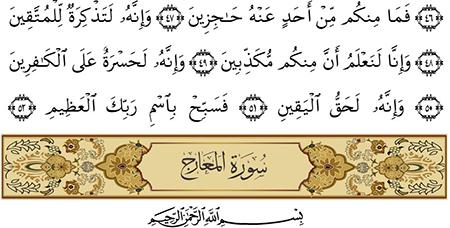 ﴿٤٦﴾ فَمَا مِنكُم مِّنْ أَحَدٍ عَنْهُ حَـٰجِزِينَ ﴿٤٧﴾ وَإِنَّهُۥ لَتَذْكِرَةٌ لِّلْمُتَّقِينَ
﴿٤٨﴾ وَإِنَّا لَنَعْلَمُ أَنَّ مِنكُم مُّكَذِّبِينَ ﴿٤٩﴾ وَإِنَّهُۥ لَحَسْرَةٌ عَلَى ٱلْكَـٰفِرِينَ
﴿٥٠﴾ وَإِنَّهُۥ لَحَقُّ ٱلْيَقِينِ ﴿٥١﴾ فَسَبِّحْ بِٱسْمِ رَبِّكَ ٱلْعَظِيمِ ﴿٥٢﴾
سُورَةُ المَعَارِجِ
بِسْمِ اللَّهِ الرَّحْمَٰنِ الرَّحِيمِ